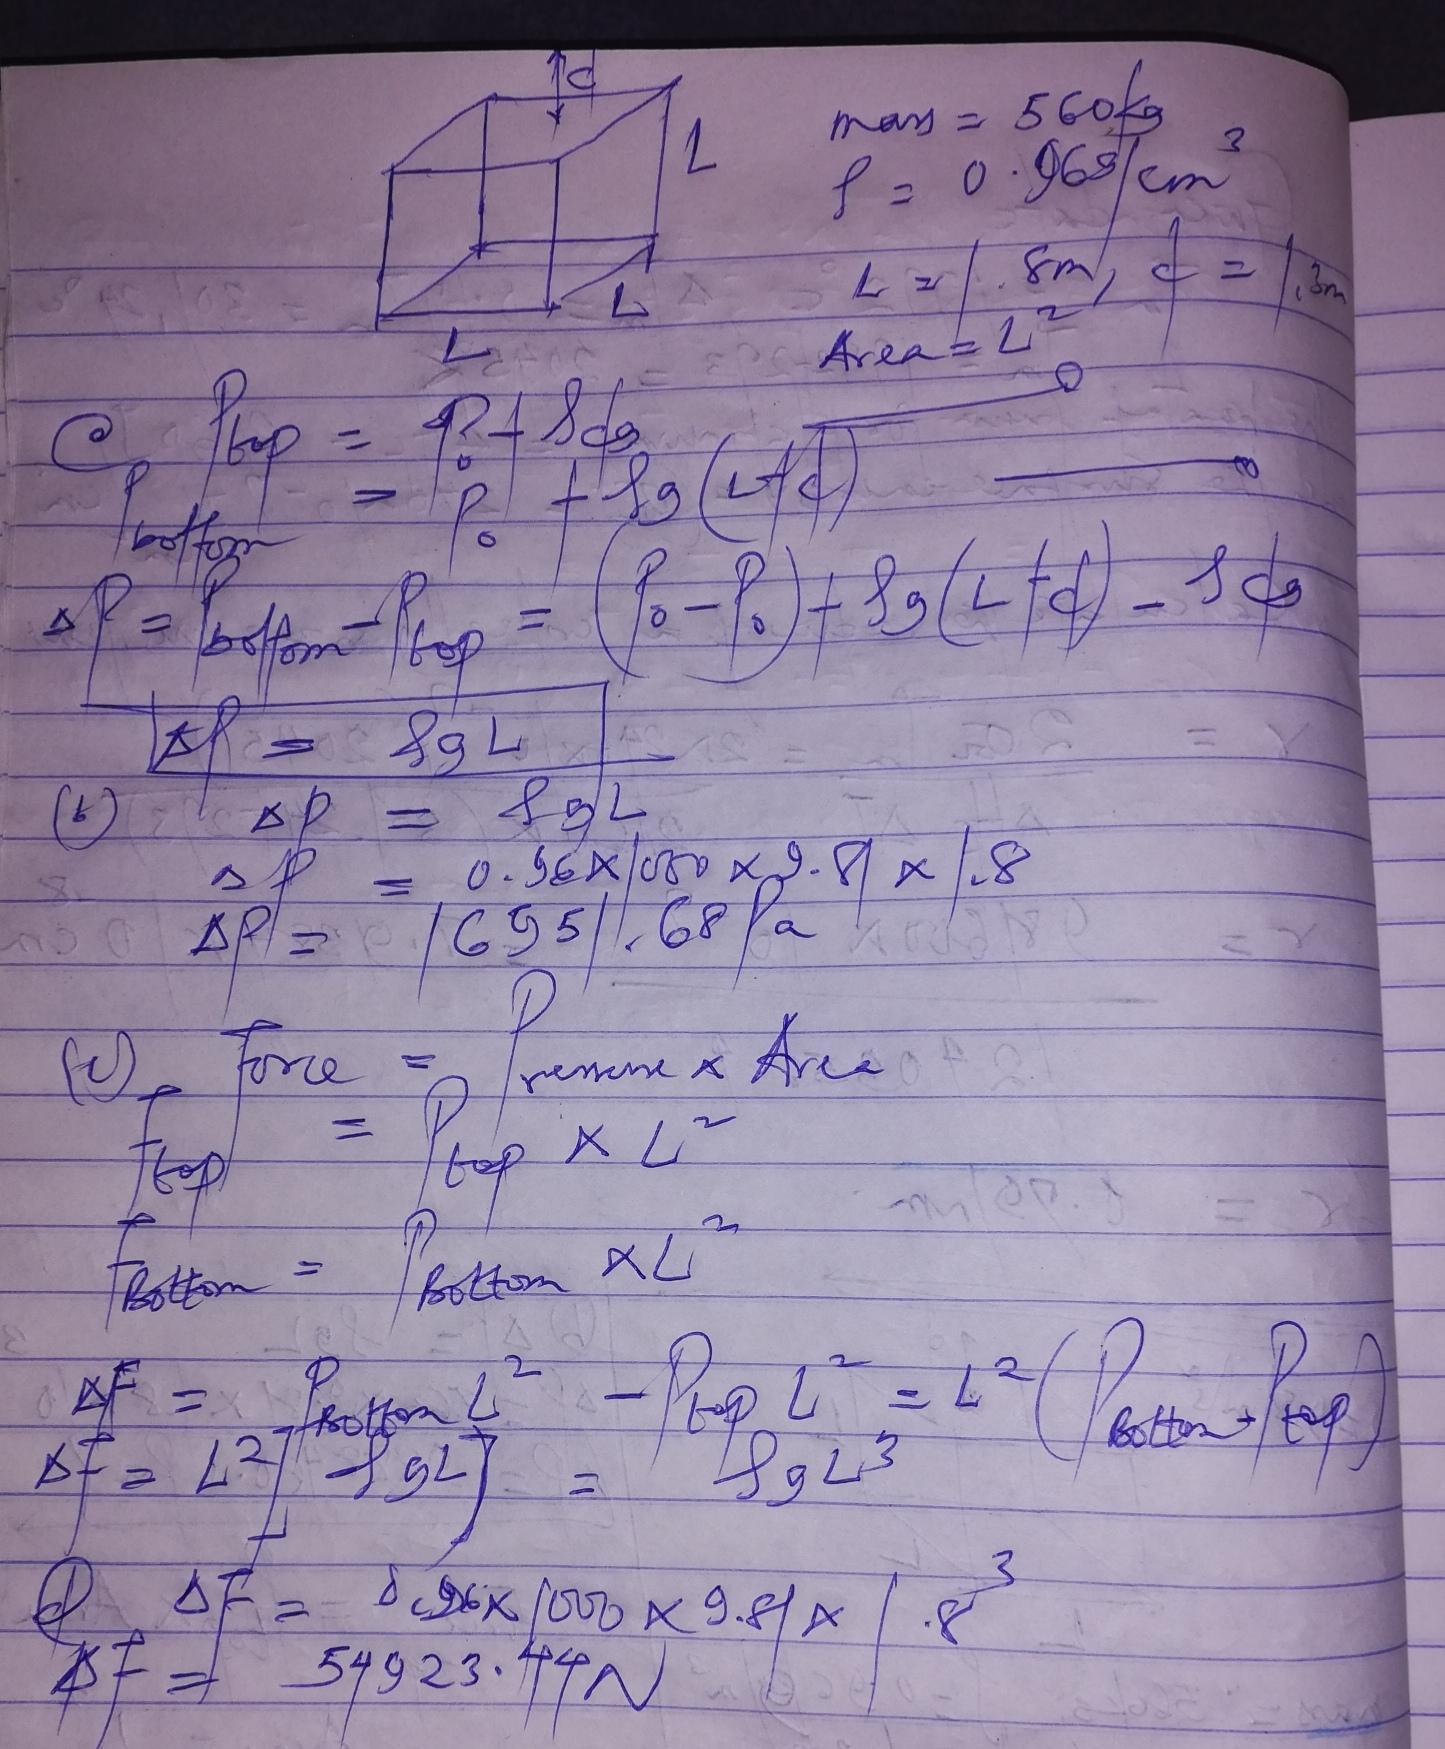 d
L
L
L
mass = 560kg
ρ = 0.96g/cm³
L = 1.8m, d = 1.3m
Area = L²
P_top = P₀ + ρdg
P_bottom = P₀ + ρg(L+d)
ΔP = P_bottom - P_top = (P₀ - P₀) + ρg(L+d) - ρdg
ΔP = ρgL
(b) ΔP = ρgL
ΔP = 0.96 × 1000 × 9.81 × 1.8
ΔP = 16951.68Pa
(c) Force = Pressure × Area
F_top = P_top × L²
F_Bottom = P_Bottom × L²
ΔF = P_Bottom L² - P_top L² = L²(P_Bottom - P_top)
ΔF = L²[ρgL] = ρgL³
d ΔF = 0.96 × 1000 × 9.81 × 1.8³
ΔF = 54923.44N